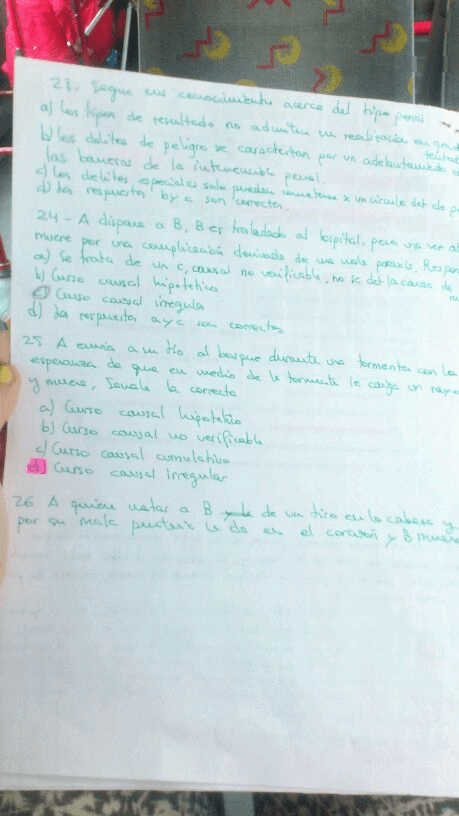 23. Segun sus conocimiento acerca del tipo penal
a) Los tipos de resultado no admiten su realización en grad
tentat
b) Los delitos de peligro se caracterizan por un adelantamiento d
las barreras de la intervención penal.
c) Los delitos especiales solo pueden cometerse x un círculo det de p
d) Las respuestas b y c son correctas.
24 - A dispara a B, B es trasladado al hospital, pero una vez al
muere por una complicación derivado de una mala praxis. Respon
a) Se trata de un c, causal no verificable, no se det la causa de
b) Curso causal hipotetico
c) Curso causal irregular
d) La respuesta a y c son correctas
25 A envía a un tío al bosque durante una tormenta con la
esperanza de que en medio de la tormenta le caiga un rayo
y muere, Señale la correcta
a) Curso causal hipotetico
b) Curso causal no verificable
c) Curso causal cumulativo
d) Curso causal irregular
26 A quiere matar a B de un tiro en la cabeza y
por su mala puntería le da en el corazón y B muere